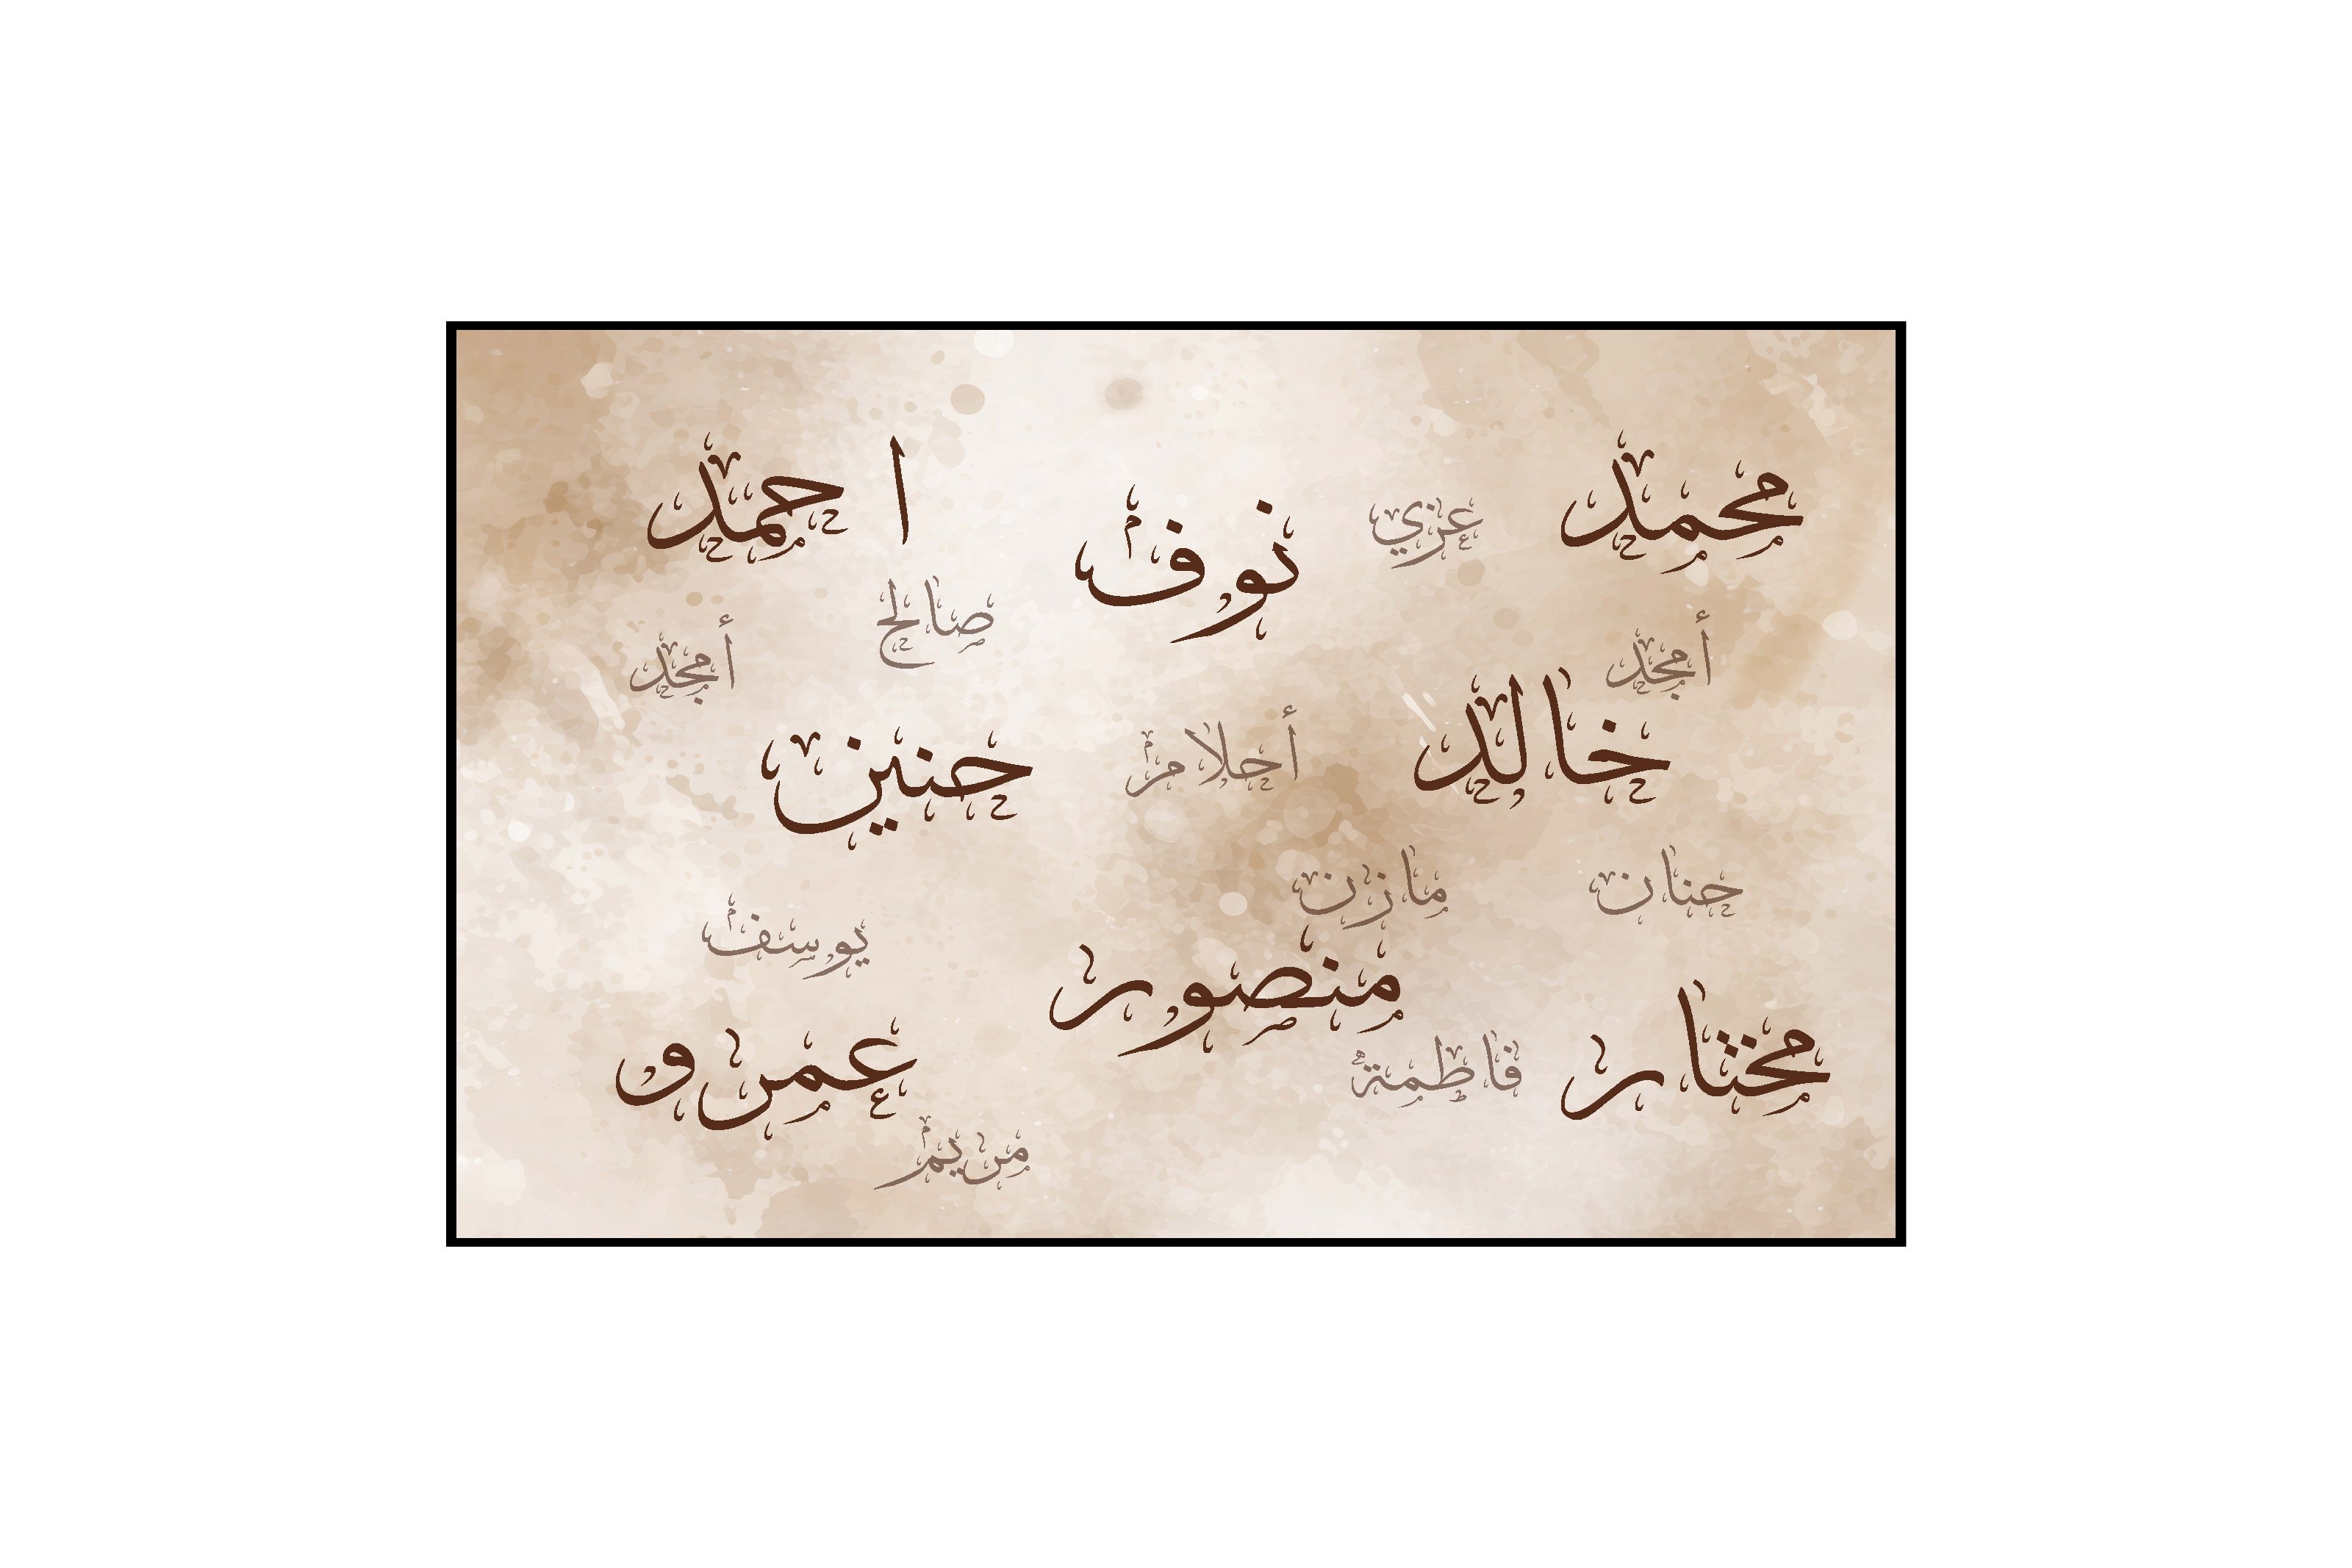 محمد
عزي
نوف
احمد
صالح
أمجد
أمجد
خالد
أحلام
حنين
حنان
مازن
يوسف
منصور
مختار
فاطمة
عمرو
مريم